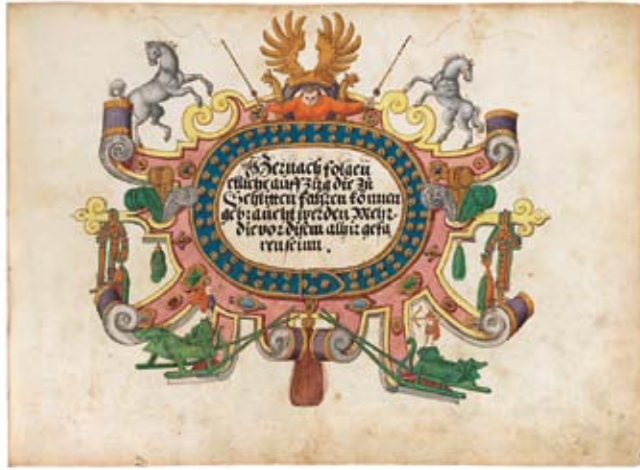 Hernach folgen
etliche auff Zug die Zu
Schlitten fahren können
gebraucht werden Mehr
die vor disem alhir gefa
ren seinn.